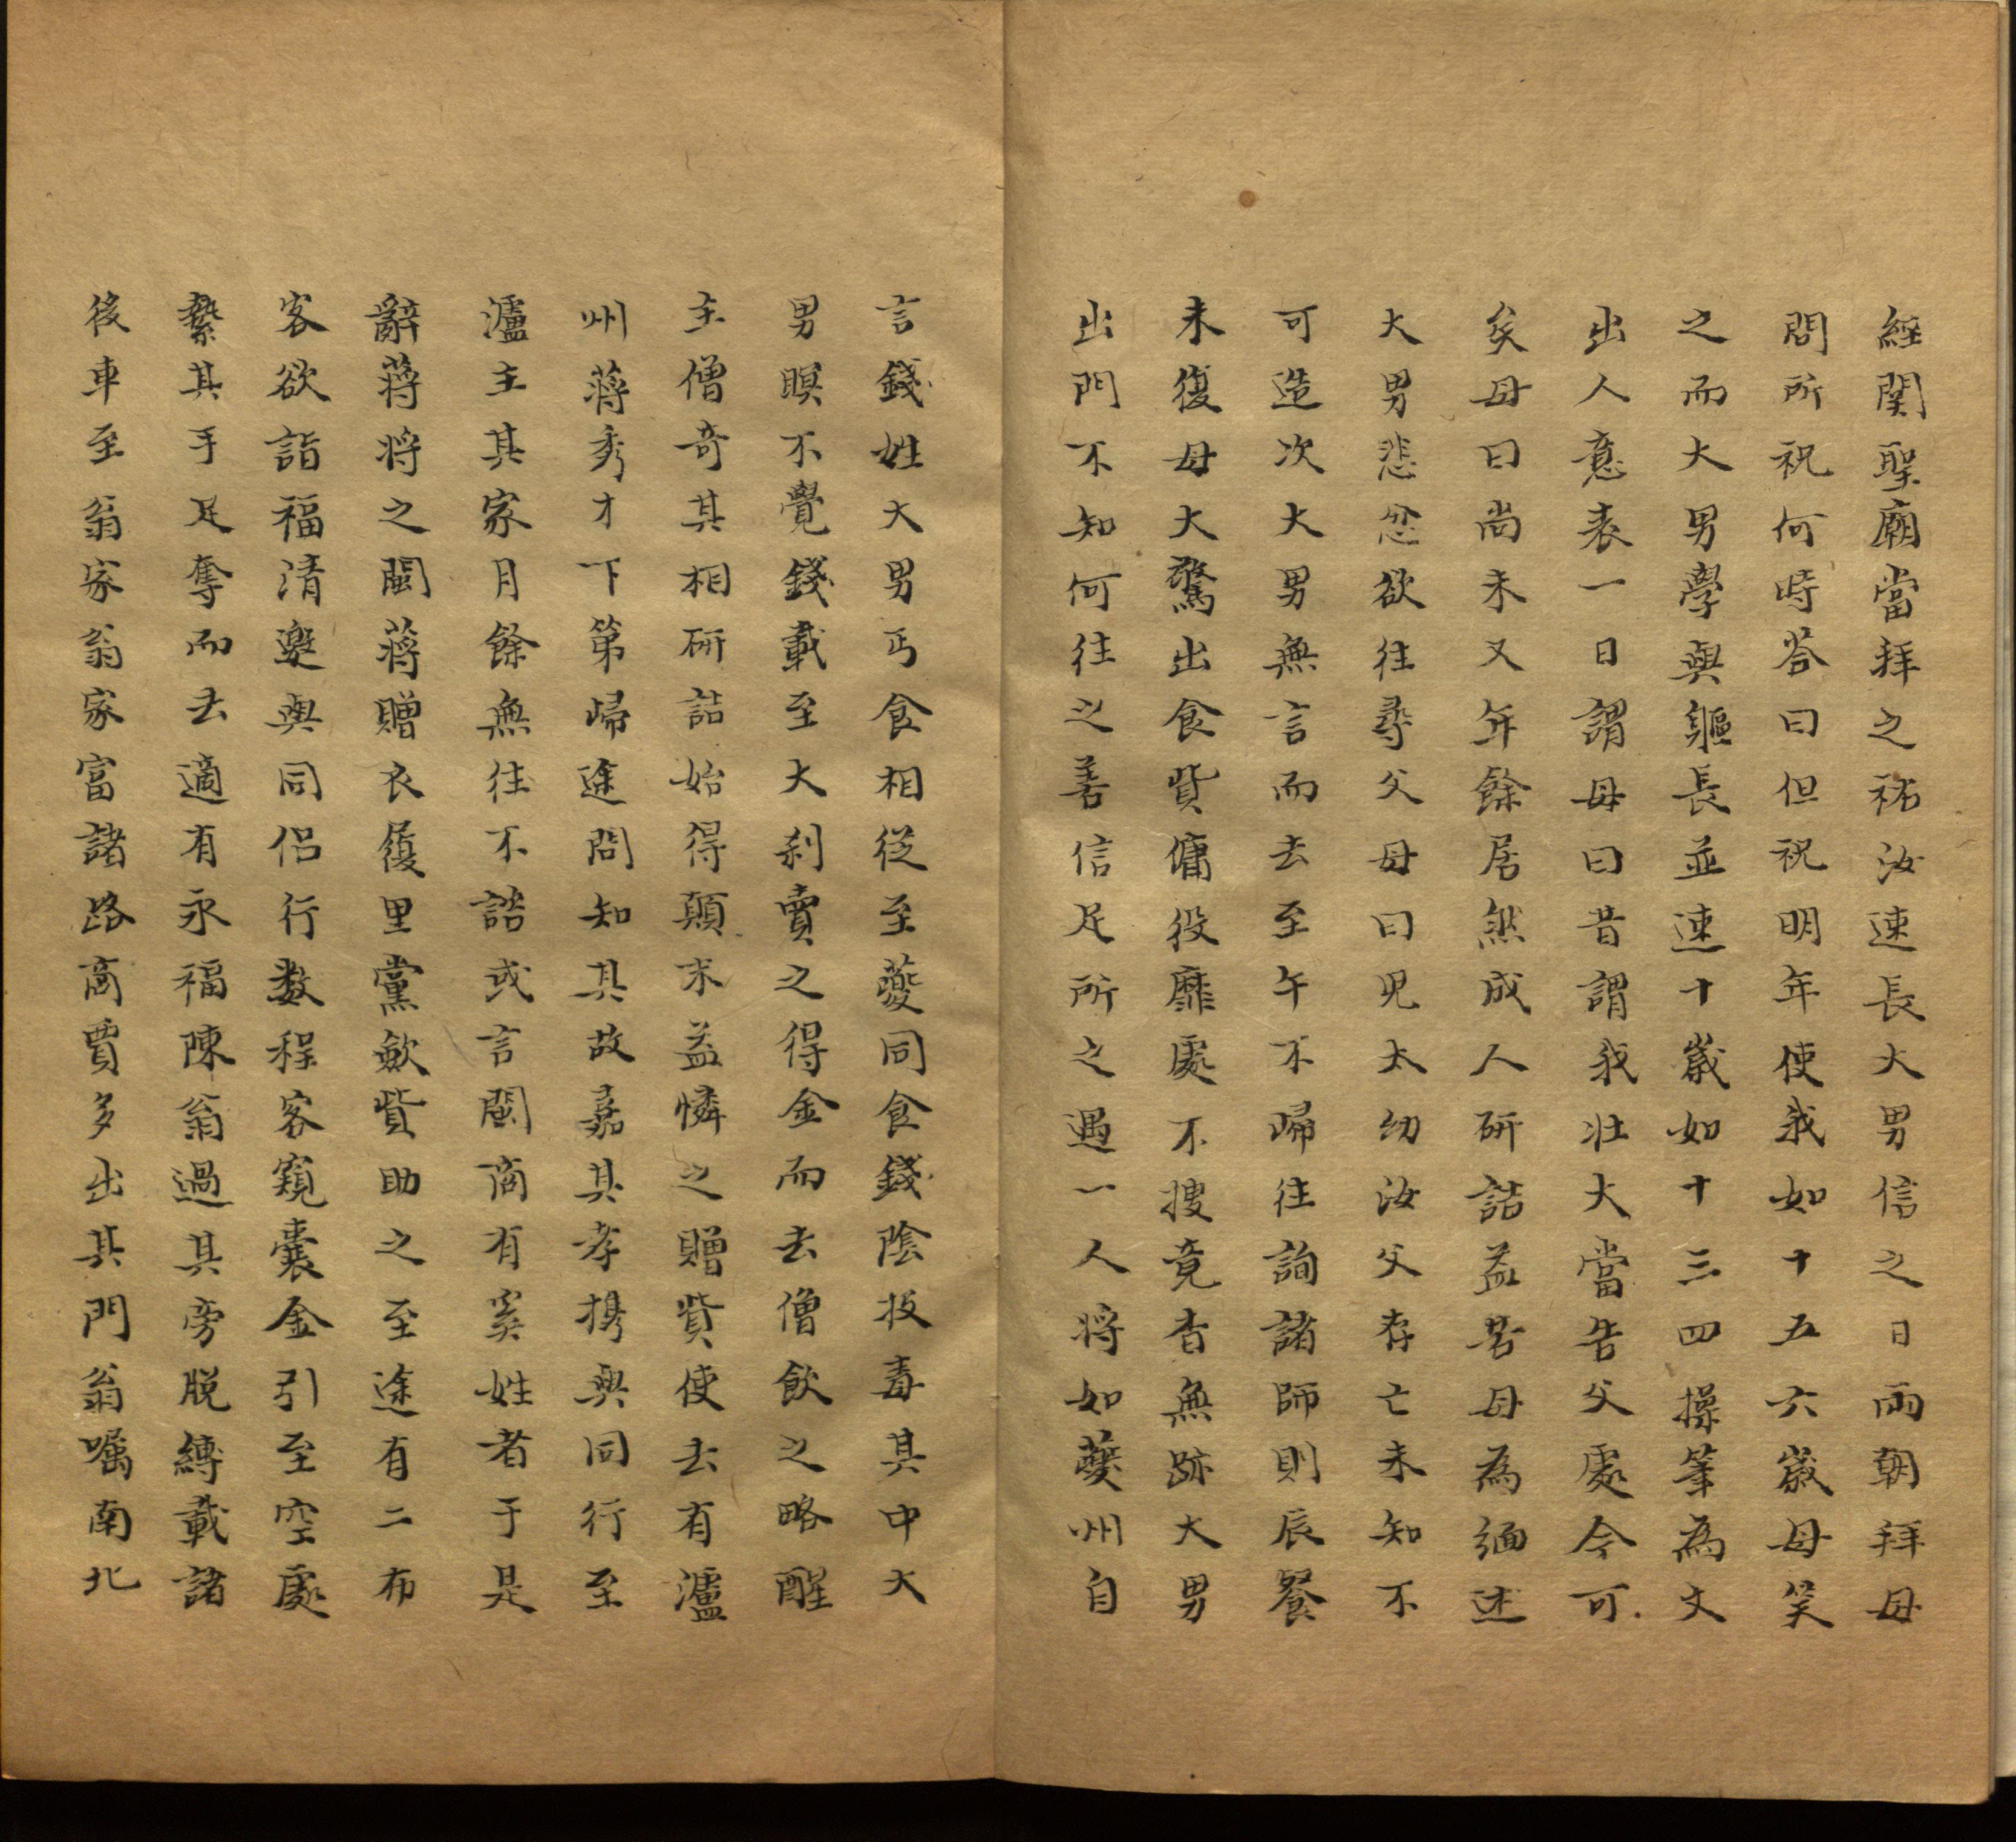 經關聖廟當拜之祐汝速長大男信之日兩朝拜母
問所祝何時答曰但祝明年使我如十五六歲母笑
之而大男學與軀長並速十歲如十三四操筆為文
出人意表一日謂母曰昔謂我壯大當告父處今可
矣母曰尚未又年餘居然成人研詰益苦母為緬述
大男悲忿欲往尋父母曰兒太幼汝父存亡未知不
可造次大男無言而去至午不歸往詢諸師則辰餐
未復母大驚出食貲傭役靡處不搜竟杳無跡大男
出門不知何往之善信足所之遇一人將如夔州自
言錢姓大男丐食相從至夔同食錢陰投毒其中大
男瞑不覺錢載至大剎賣之得金而去僧飲之略醒
主僧奇其相研詰始得顛末益憐之贈貲使去有瀘
州蔣秀才下第歸途問知其故嘉其孝携與同行至
瀘主其家月餘無往不諮或言閩商有奚姓者于是
辭蔣將之閩蔣贈衣履里黨歛貲助之至途有二布
客欲詣福清邀與同侶行数程客窺囊金引至空處
縶其手足奪而去適有永福陳翁過其旁脱縛載諸
後車至翁家翁家富諸路商賈多出其門翁嘱南北